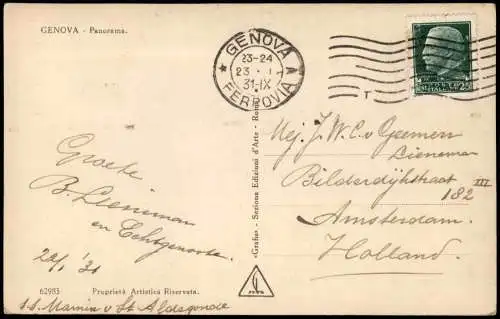 GENOVA - Panorama.
GENOVA
23-24
23 · I
31·IX
FERROVIA
T
Groete
B. Lieneman
en Echtgenoote.
22/1 '31
62953 Proprietà Artistica Riservata.
s.s. Marnix v St Aldegonde
«Grafia» - Sezione Edizioni d'Arte - Roma
Mej. J. W. C. v Geemen
Lieneman
Bilderdijkstraat
182 III
Amsterdam.
Holland.